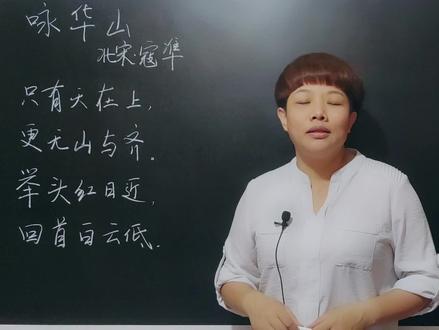 咏华山
北宋·寇準
只有天在上，
更无山与齐.
举头红日近，
回首白云低.